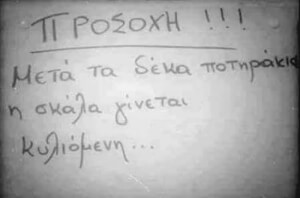 ΠΡΟΣΟΧΗ !!!
Μετά τα δέκα ποτηράκια
η σκάλα γίνεται
κυλιόμενη...